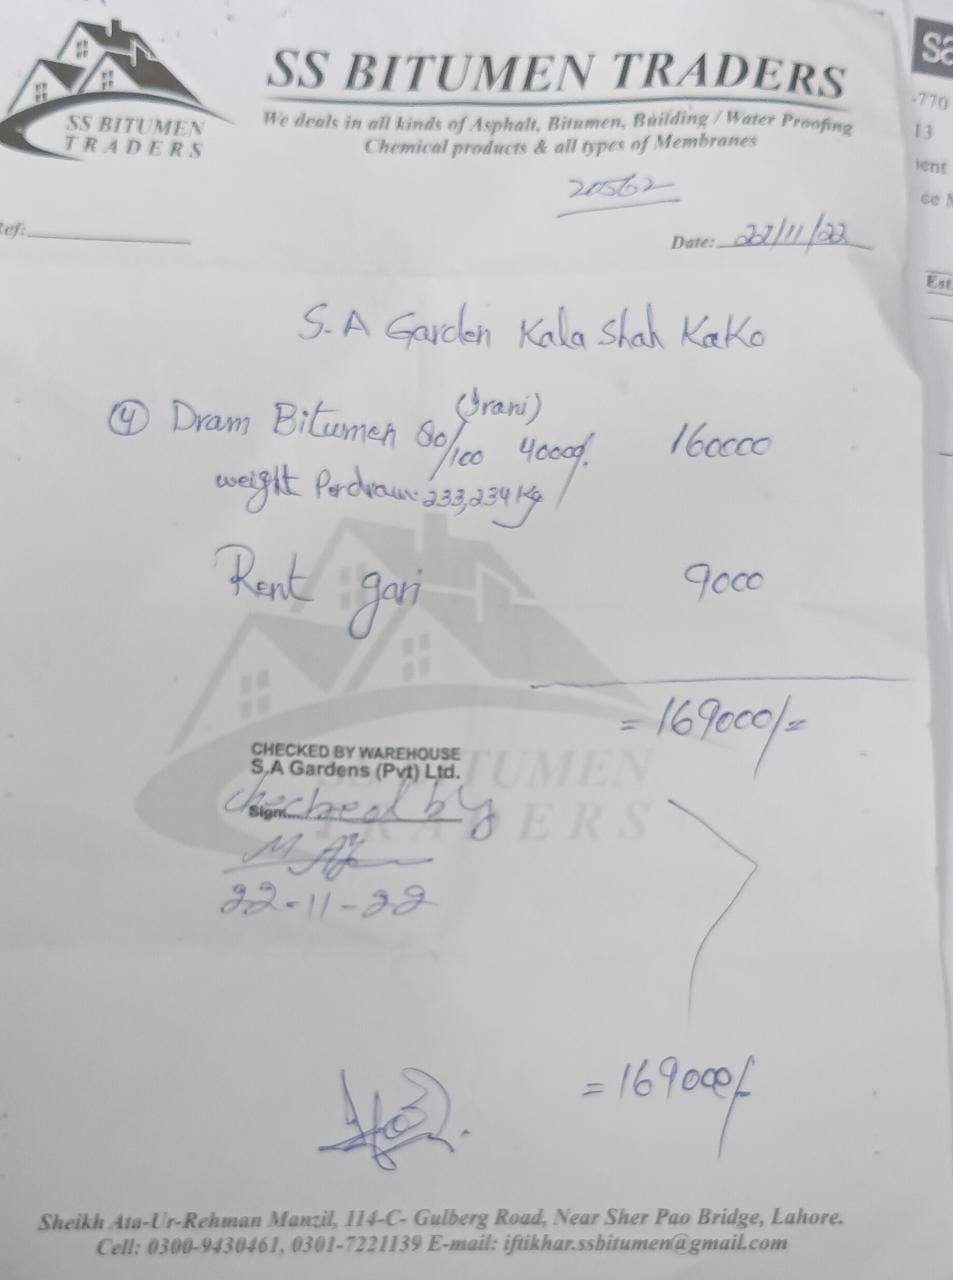 SS BITUMEN TRADERS
SS BITUMEN
TRADERS
We deals in all kinds of Asphalt, Bitumen, Building / Water Proofing
Chemical products & all types of Membranes
20562
Ref:
Date: 22/11/22
S.A Garden Kala Shah Kako
(Irani)
④ Dram Bitumen 80/100 40000/. 160000
weight Perdram: 233,234 Kg
Rent gari 9000
= 169000/=
CHECKED BY WAREHOUSE
S.A Gardens (Pvt) Ltd.
Sign
checked by
22-11-22
= 169000/-
Sheikh Ata-Ur-Rehman Manzil, 114-C- Gulberg Road, Near Sher Pao Bridge, Lahore.
Cell: 0300-9430461, 0301-7221139 E-mail: iftikhar.ssbitumen@gmail.com
-770
13
ce
Est